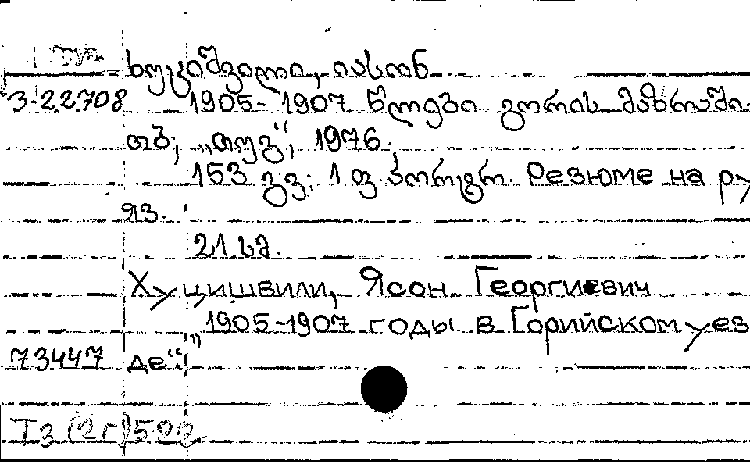 ხუციშვილი, იასონ
3-22708 1905-1907 წლები გორის მაზრაში.
თბ; „თუგ“, 1976.
153 გვ; 1 ფ პორტრ. Резюме на ру
яз.
21 სმ.
Хуцишвили, Ясон Георгиевич
„1905-1907 годы в Горийском уез
73447 де“.
Т3 (2Г) 522